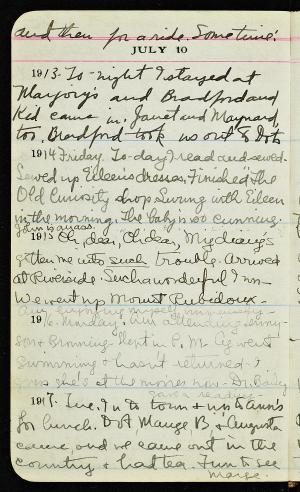 and then for a ride. Some time!
JULY 10
1913. To-night I stayed at
Marjory's and Bradford and
Kid came in. Janet and Maynard,
too. Bradford took us out to
1914 Friday. To-day I read and sewed.
Sewed up Eileen's dresses. Finished "The
Old Curiosity Shop. Swing with Eileen
in the morning. The baby is so cunning.
1915 Oh, dear, Oh dear, My diary's
gotten me into such trouble. Arrived
at Riverside. Such a wonderful Inn
We went up Mount Rubidoux.
Am enjoying myself immensely
1916. Monday. Am attending
&
swimming & hasn't returned. I
she's at the movies now. Dr. Bailey
gave a reading.
1917. Tue. In to town & up to Ann's
for lunch. Dot, Marge, B. & Augusta
came, and we came out in the
country & had tea. Fun to see
Marge.